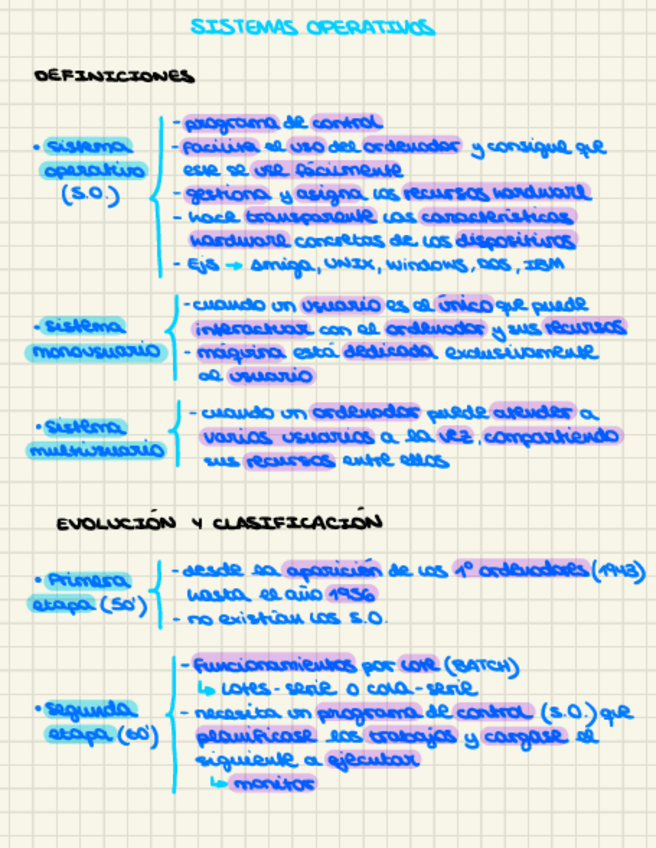 SISTEMAS OPERATIVOS
DEFINICIONES
• sistema
operativo
(S.O.)
- programa de control
- facilita el uso del ordenador y consigue que
este se use fácilmente
- gestiona y asigna los recursos hardware
- hace transparente las características
hardware concretas de los dispositivos
- Ejs → Amiga, UNIX, Windows, DOS, IBM
• sistema
monousuario
- cuando un usuario es el único que puede
interactuar con el ordenador y sus recursos
- máquina está dedicada exclusivamente
al usuario
• sistema
multiusuario
- cuando un ordenador puede atender a
varios usuarios a la vez, compartiendo
sus recursos entre ellos
EVOLUCIÓN Y CLASIFICACIÓN
• Primera
etapa (50')
- desde la aparición de los 1º ordenadores (1943)
hasta el año 1956
- no existían los S.O.
• segunda
etapa (60')
- funcionamientos por lote (BATCH)
↳ lotes-serie o cola-serie
- necesita un programa de control (S.O.) que
planificase los trabajos y cargase el
siguiente a ejecutar
↳ monitor